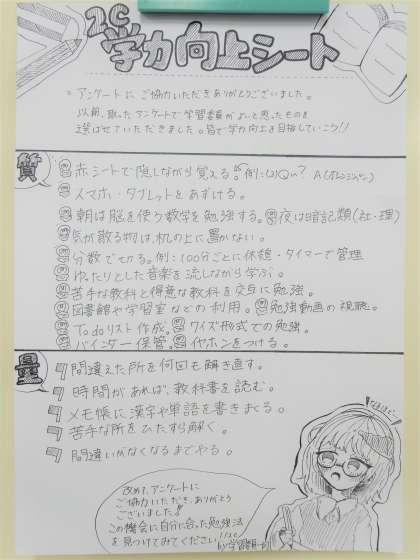 2C
学力向上シート
◦ アンケートに ご協力いただきありがとうございました。
以前、取ったアンケートで学習委員が よいと思ったものを
選ばせていただきました。皆で学力向上を目指していこう!!
質
赤シートで隠しながら覚える。例:(2)Qu? A(オレンジペン)
スマホ・タブレットをあずける。
朝は脳を使う数学を勉強する。夜は暗記類(社・理)
気が散る物は机の上に置かない。
分数でせる。例:100分ごとに休憩・タイマーで管理
ゆったりとした音楽を流しながら学ぶ。
苦手な教科と得意な教科を交互に勉強。
図書館や学習室などの利用。勉強動画の視聴。
Todoリスト作成。クイズ形式での勉強。
バインダー保管。イヤホンをつける。
量
間違えた所を何回も解き直す。
時間があれば、教科書を読む。
メモ帳に漢字や単語を書きまくる。
苦手な所をひたすら解く。
間違いがなくなるまでやる。
改めて、アンケートに
ご協力いただき、ありがとう
ございました!!
この機会に自分に合った勉強法
を見つけてみてください!!
by学習委員